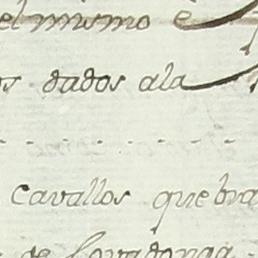 el mismo è
os dados ala
cavallos quebra
de Covadonga